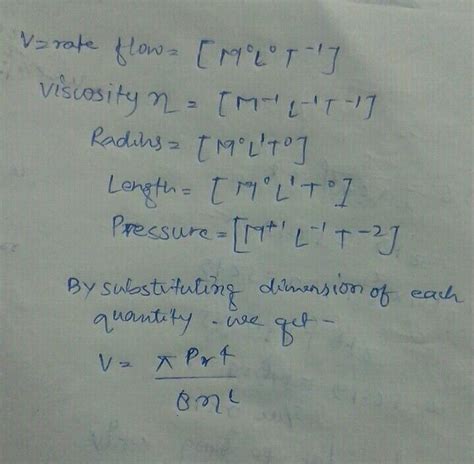 V = rate flow = [M⁰L⁰T⁻¹]
Viscosity η = [M⁻¹L⁻¹T⁻¹]
Radius = [M⁰L¹T⁰]
Length = [M⁰L¹T⁰]
Pressure = [M⁺¹L⁻¹T⁻²]
By substituting dimension of each
quantity - we get -
V = π P r 4
8 η l